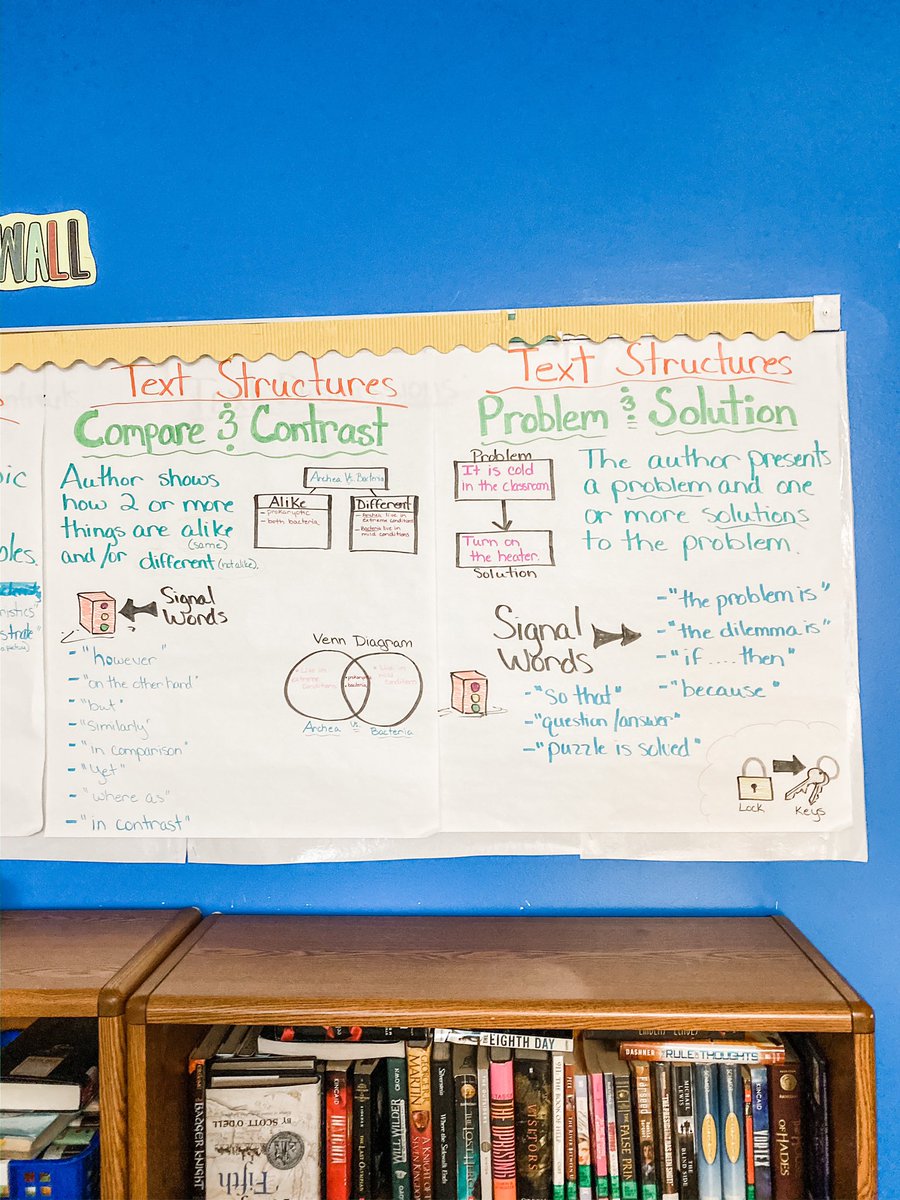 WALL
Text Structures
Compare & Contrast
Author shows
how 2 or more
things are alike
(same)
and/or different (not alike).
Archea Vs. Bacteria
Alike
- prokaryotic
- both bacteria
Different
- Archea live in
extreme conditions
- Bacteria live in
mild conditions
Signal
Words
- "however"
- "on the other hand"
- "but"
- "similarly"
- "in comparison"
- "yet"
- "where as"
- "in contrast"
Venn Diagram
Archea Vs. Bacteria
Text Structures
Problem & Solution
Problem
It is cold
in the classroom
Turn on
the heater.
Solution
The author presents
a problem and one
or more solutions
to the problem.
Signal
Words
- "the problem is"
- "the dilemma is"
- "if .... then"
- "because"
- "so that"
- "question/answer"
- "puzzle is solved"
Lock
Keys
THE EIGHTH DAY
DASHNER THE RULE OF THOUGHTS
BADGER KNIGHT
BY SCOTT O'DELL
KINCAID
GEORGE R.R. MARTIN
A KNIGHT OF THE SEVEN KINGDOMS
Silverstein
Where the Sidewalk Ends
VISITORS
MICHAEL LEWIS
THE BLIND SIDE
KINCAID
VORTEX
OF HADES